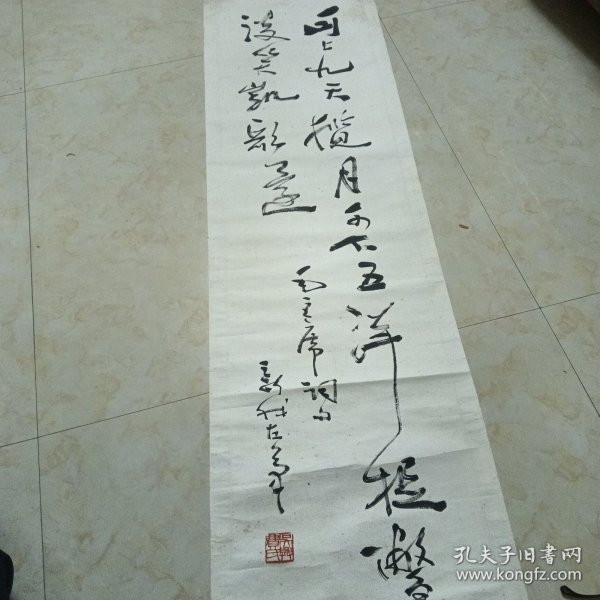 可上九天揽月可下五洋捉鳖
谈笑凯歌还
毛主席词句
孔夫子旧书网
www.kongfz.com